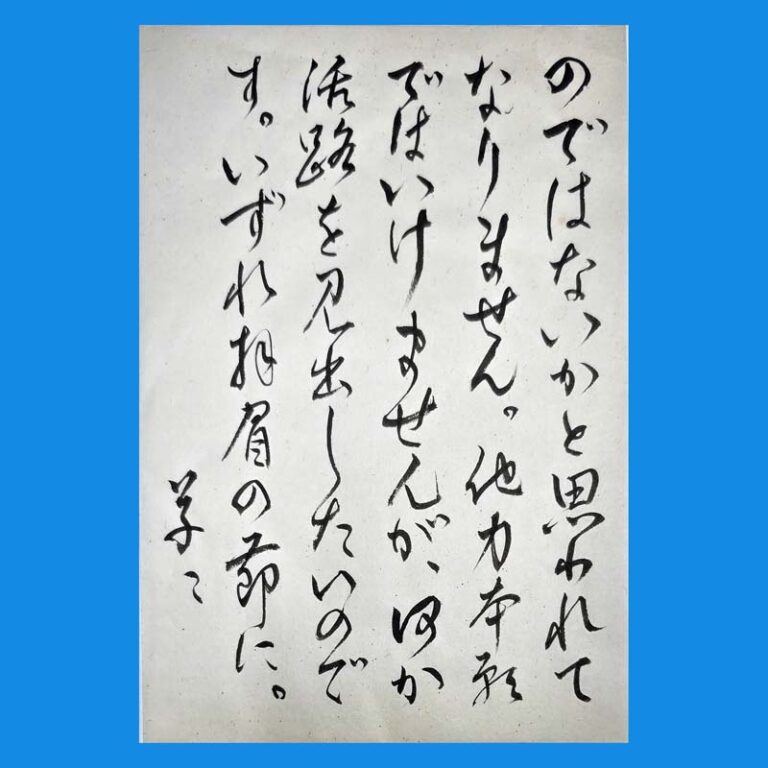 のではないかと思われて
なりません。他力本願
ではいけませんが、何か
活路を見出したいので
す。いずれ拝眉の節に。
草々